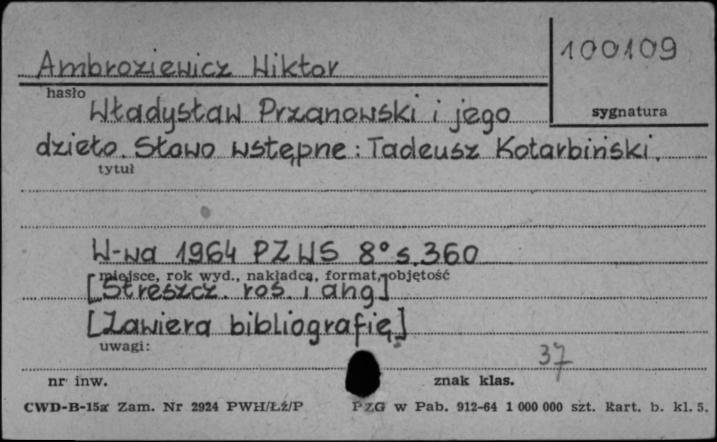 Ambroziewicz Wiktor
100109
hasło
sygnatura
Władysław Przanowski i jego
dzieło. Słowo wstępne: Tadeusz Kotarbiński.
tytuł
W-wa 1964 PZWS 8° s. 360
miejsce, rok wyd., nakładca, format, objętość
[Streszcz. roś. i ang]
[Zawiera bibliografię]
uwagi:
37
nr inw.
znak klas.
CWD-B-15a Zam. Nr 2924 PWH/Łź/P PZG w Pab. 912-64 1 000 000 szt. Kart. b. kl. 5.